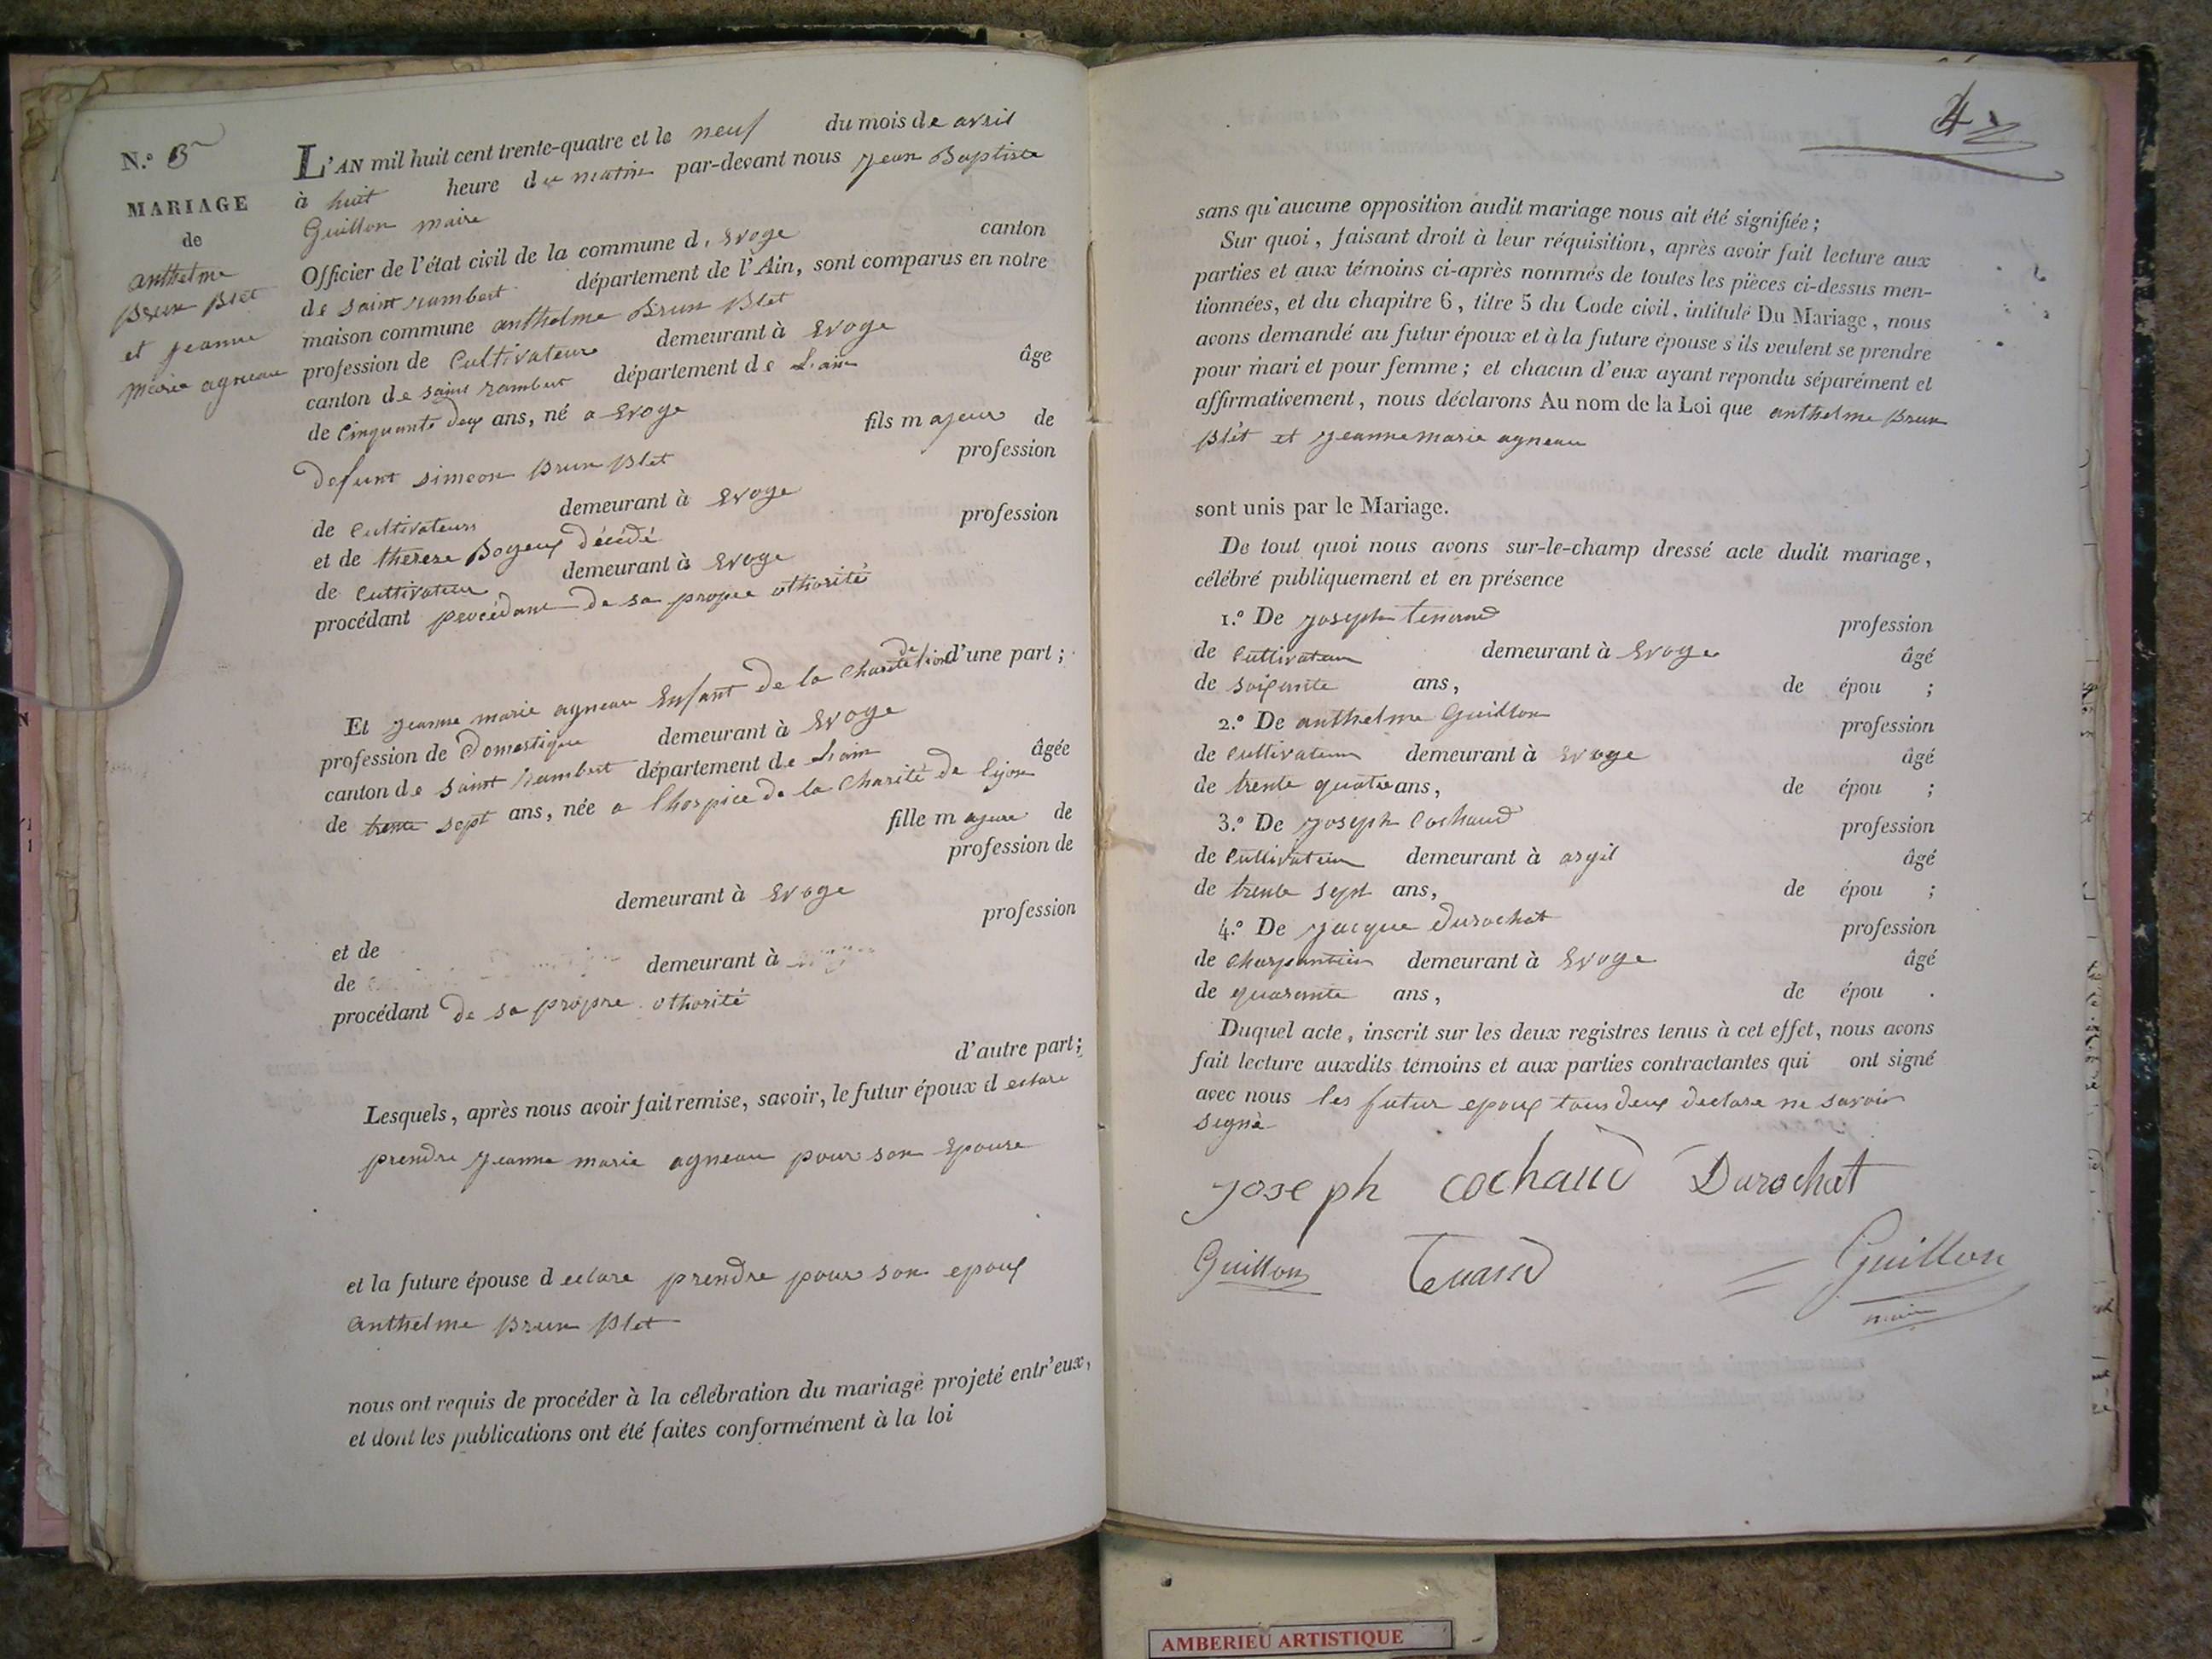 N.º 5
MARIAGE
de
anthelme
Brun Blet
et jeanne
marie agneau
L'AN mil huit cent trente-quatre et le neuf du mois de avril
à huit heure du matin par-devant nous jean Baptiste
Guillon maire
Officier de l'état civil de la commune d. Evoge canton
de saint rambert département de l'Ain, sont comparus en notre
maison commune anthelme Brun Blet
profession de Cultivateur demeurant à Evoge
canton de saint rambert département de L'ain âge
de Cinquante deux ans, né a Evoge
fils majeur de
defunt simeon Brun Blet profession
de Cultivateurs demeurant à Evoge
et de therese Boyeux décédé profession
de Cultivateur demeurant à Evoge
procédant procédant de sa propre othorité
d'une part ;
Et jeanne marie agneau Enfant de la Charité de lion
profession de Domestique demeurant à Evoge
canton de saint rambert département de L'ain âgée
de trente sept ans, née a l'hospice de la Charité de lyon
fille majeure de
profession de
demeurant à Evoge
et de profession
de demeurant à
procédant de sa propre othorité
d'autre part ;
Lesquels, après nous avoir fait remise, savoir, le futur époux declare
prendre jeanne marie agneau pour son Epouse
et la future épouse declare prendre pour son epoux
anthelme Brun Blet
nous ont requis de procéder à la célébration du mariage projeté entr'eux,
et dont les publications ont été faites conformément à la loi
4
sans qu'aucune opposition audit mariage nous ait été signifiée ;
Sur quoi, faisant droit à leur réquisition, après avoir fait lecture aux
parties et aux témoins ci-après nommés de toutes les pièces ci-dessus men-
tionnées, et du chapitre 6, titre 5 du Code civil, intitulé Du Mariage, nous
avons demandé au futur époux et à la future épouse s'ils veulent se prendre
pour mari et pour femme ; et chacun d'eux ayant repondu séparément et
affirmativement, nous déclarons Au nom de la Loi que anthelme Brun
Blet et jeanne marie agneau
sont unis par le Mariage.
De tout quoi nous avons sur-le-champ dressé acte dudit mariage,
célébré publiquement et en présence
1.º De joseph profession
de Cultivateur demeurant à Evoge âgé
de soixante ans, de épou ;
2.º De anthelme Guillon profession
de Cultivateur demeurant à Evoge âgé
de trente quatre ans, de épou ;
3.º De joseph Cochaud profession
de Cultivateur demeurant à argil âgé
de trente sept ans, de épou ;
4.º De jacque Durochat profession
de Charpentier demeurant à Evoge âgé
de quarante ans, de épou .
Duquel acte, inscrit sur les deux registres tenus à cet effet, nous avons
fait lecture auxdits témoins et aux parties contractantes qui ont signé
avec nous les futur epoux tous deux declare ne savoir
signé
joseph cochaud Durochat
Guillon Guillon
maire
AMBERIEU ARTISTIQUE